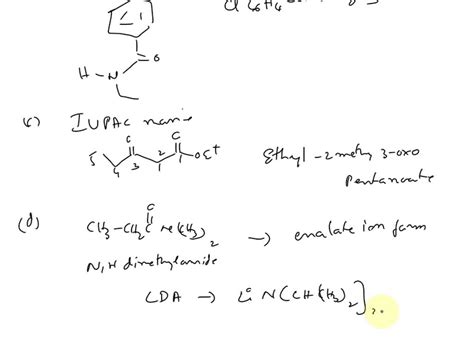 H-N
O
(c) IUPAC name
O O
5 4 3 2 1 1 OEt
Ethyl -2 methy 3-oxo
Pentanoate
(d) CH3-CH2 C N(CH3)2 → enolate ion form
N,N dimethylamide
LDA → Li N(CH(CH3)2]2